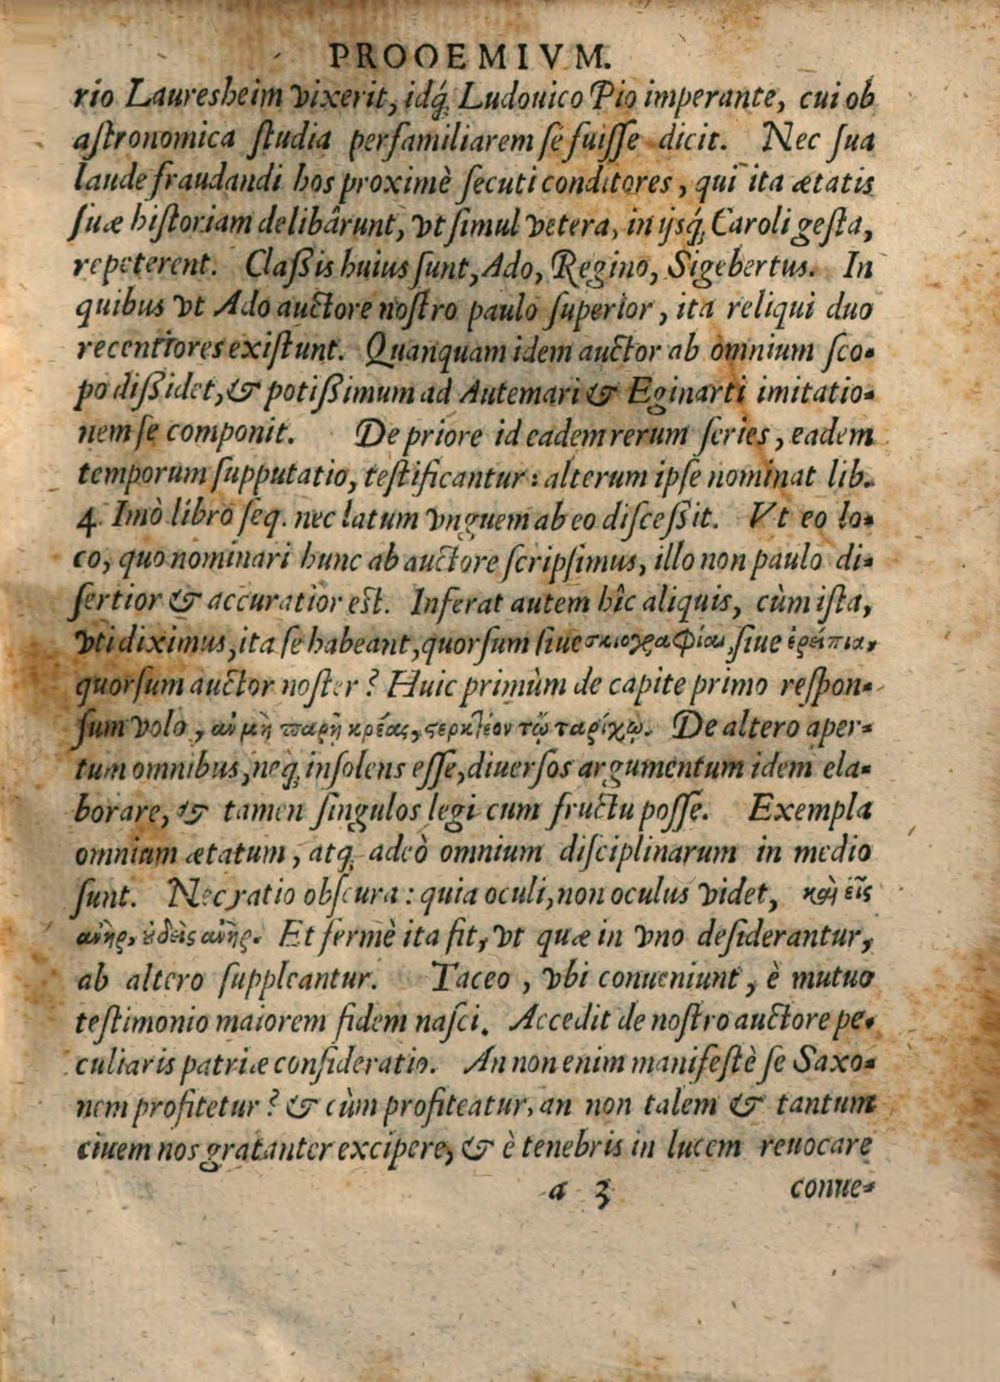 PROOEMIVM.
rio Lauresheim vixerit, idq́; Ludouico Pio imperante, cui ob
aſtronomica ſtudia perfamiliarem ſe fuiſſe dicit. Nec ſua
laude fraudandi hos proximè ſecuti conditores, qui ita ætatis
ſuæ hiſtoriam delibârunt, vt ſimul vetera, in ijsq́; Caroli geſta,
repeterent. Claßis huius ſunt, Ado, Regino, Sigebertus. In
quibus vt Ado auctore noſtro paulo ſuperior, ita reliqui duo
recentiores exiſtunt. Quanquam idem auctor ab omnium ſco-
po dißidet, & potißimum ad Autemari & Eginarti imitatio-
nem ſe componit. De priore id eadem rerum ſeries, eadem
temporum ſupputatio, teſtificantur: alterum ipſe nominat lib.
4. Imò libro ſeq. nec latum vnguem ab eo diſceßit. Vt eo lo-
co, quo nominari hunc ab auctore ſcripſimus, illo non paulo di-
ſertior & accuratior est. Inferat autem hîc aliquis, cùm iſta,
vti diximus, ita ſe habeant, quorſum ſiue σκιογραφίαι, ſiue ἐρείπια,
quorſum auctor noſter? Huic primùm de capite primo reſpon-
ſum volo, ἂν μὴ παρῆ κρέας, ςερκτέον τῷ ταρίχῳ. De altero aper-
tum omnibus, neq; inſolens eſſe, diuerſos argumentum idem ela-
borare, & tamen ſingulos legi cum fructu poſſe. Exempla
omnium ætatum, atq; adeò omnium diſciplinarum in medio
ſunt. Nec ratio obſcura: quia oculi, non oculus videt, καὶ εἷς
ἀνὴρ, ȣ̓δεὶς ἀνὴρ. Et fermè ita fit, vt quæ in vno deſiderantur,
ab altero ſuppleantur. Taceo, vbi conueniunt, è mutuo
teſtimonio maiorem fidem naſci. Accedit de noſtro auctore pe-
culiaris patriæ conſideratio. An non enim manifeſtè ſe Saxo-
nem profitetur? & cùm profiteatur, an non talem & tantum
ciuem nos gratanter excipere, & è tenebris in lucem reuocare
a 3 conue-